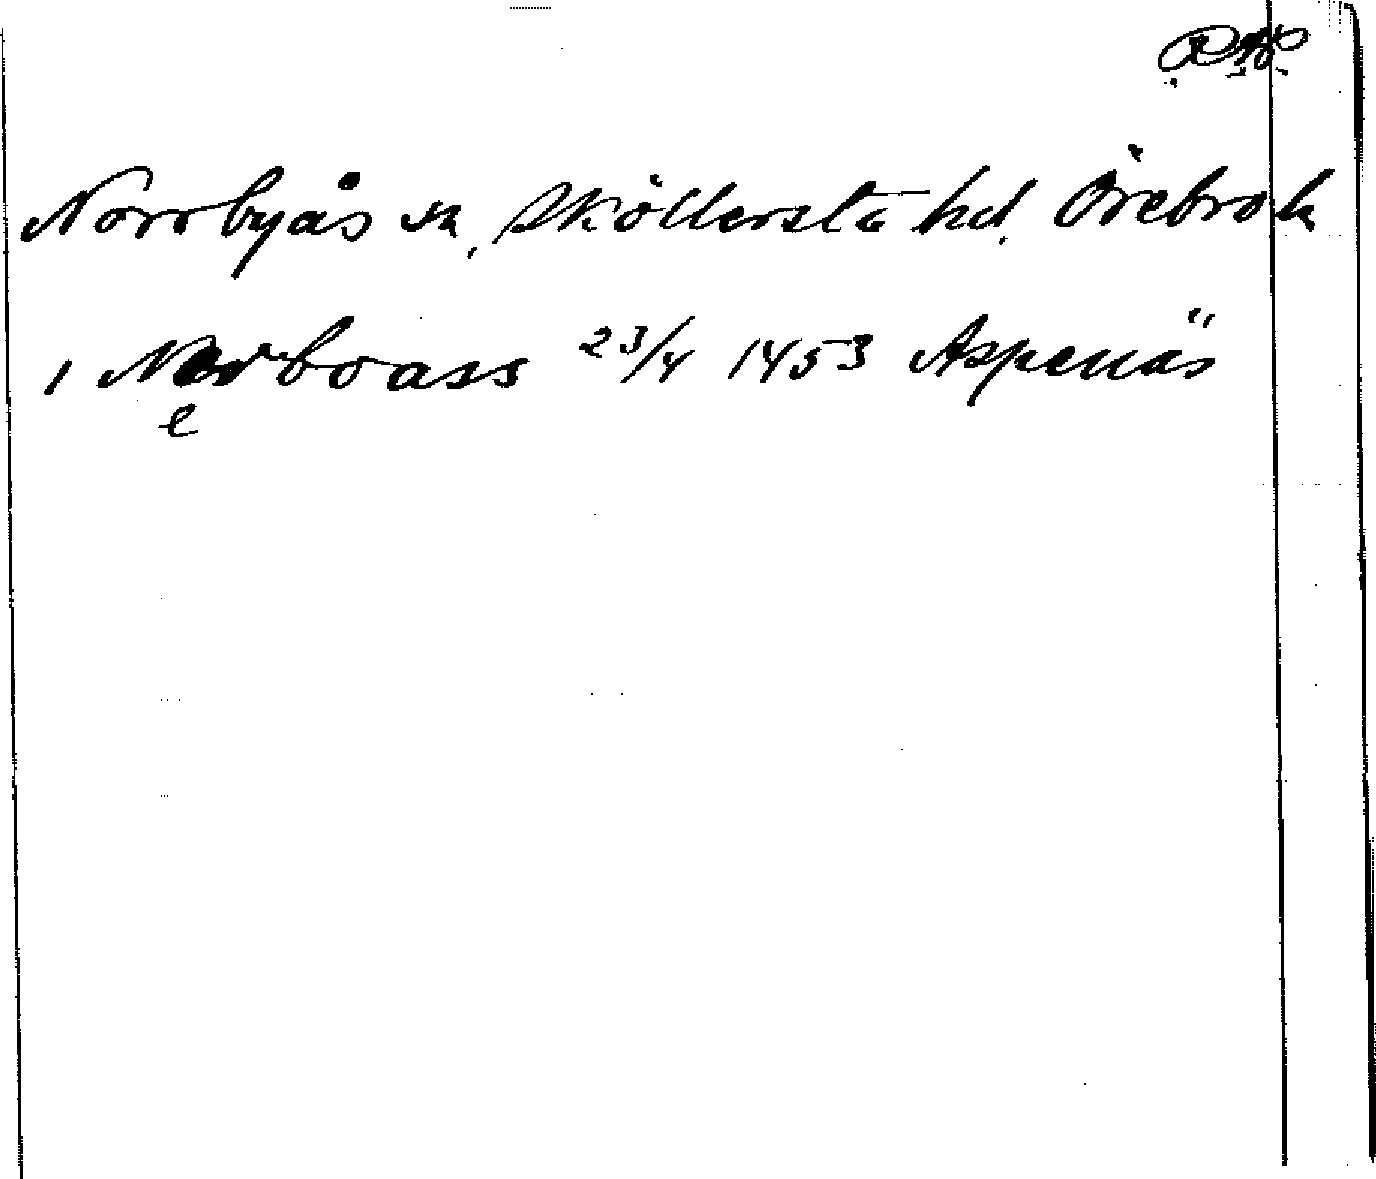 Norrbyås sn, Sköllersta hd. Örebro l.
i Nerboass 23/4 1453 Aspenäs
e